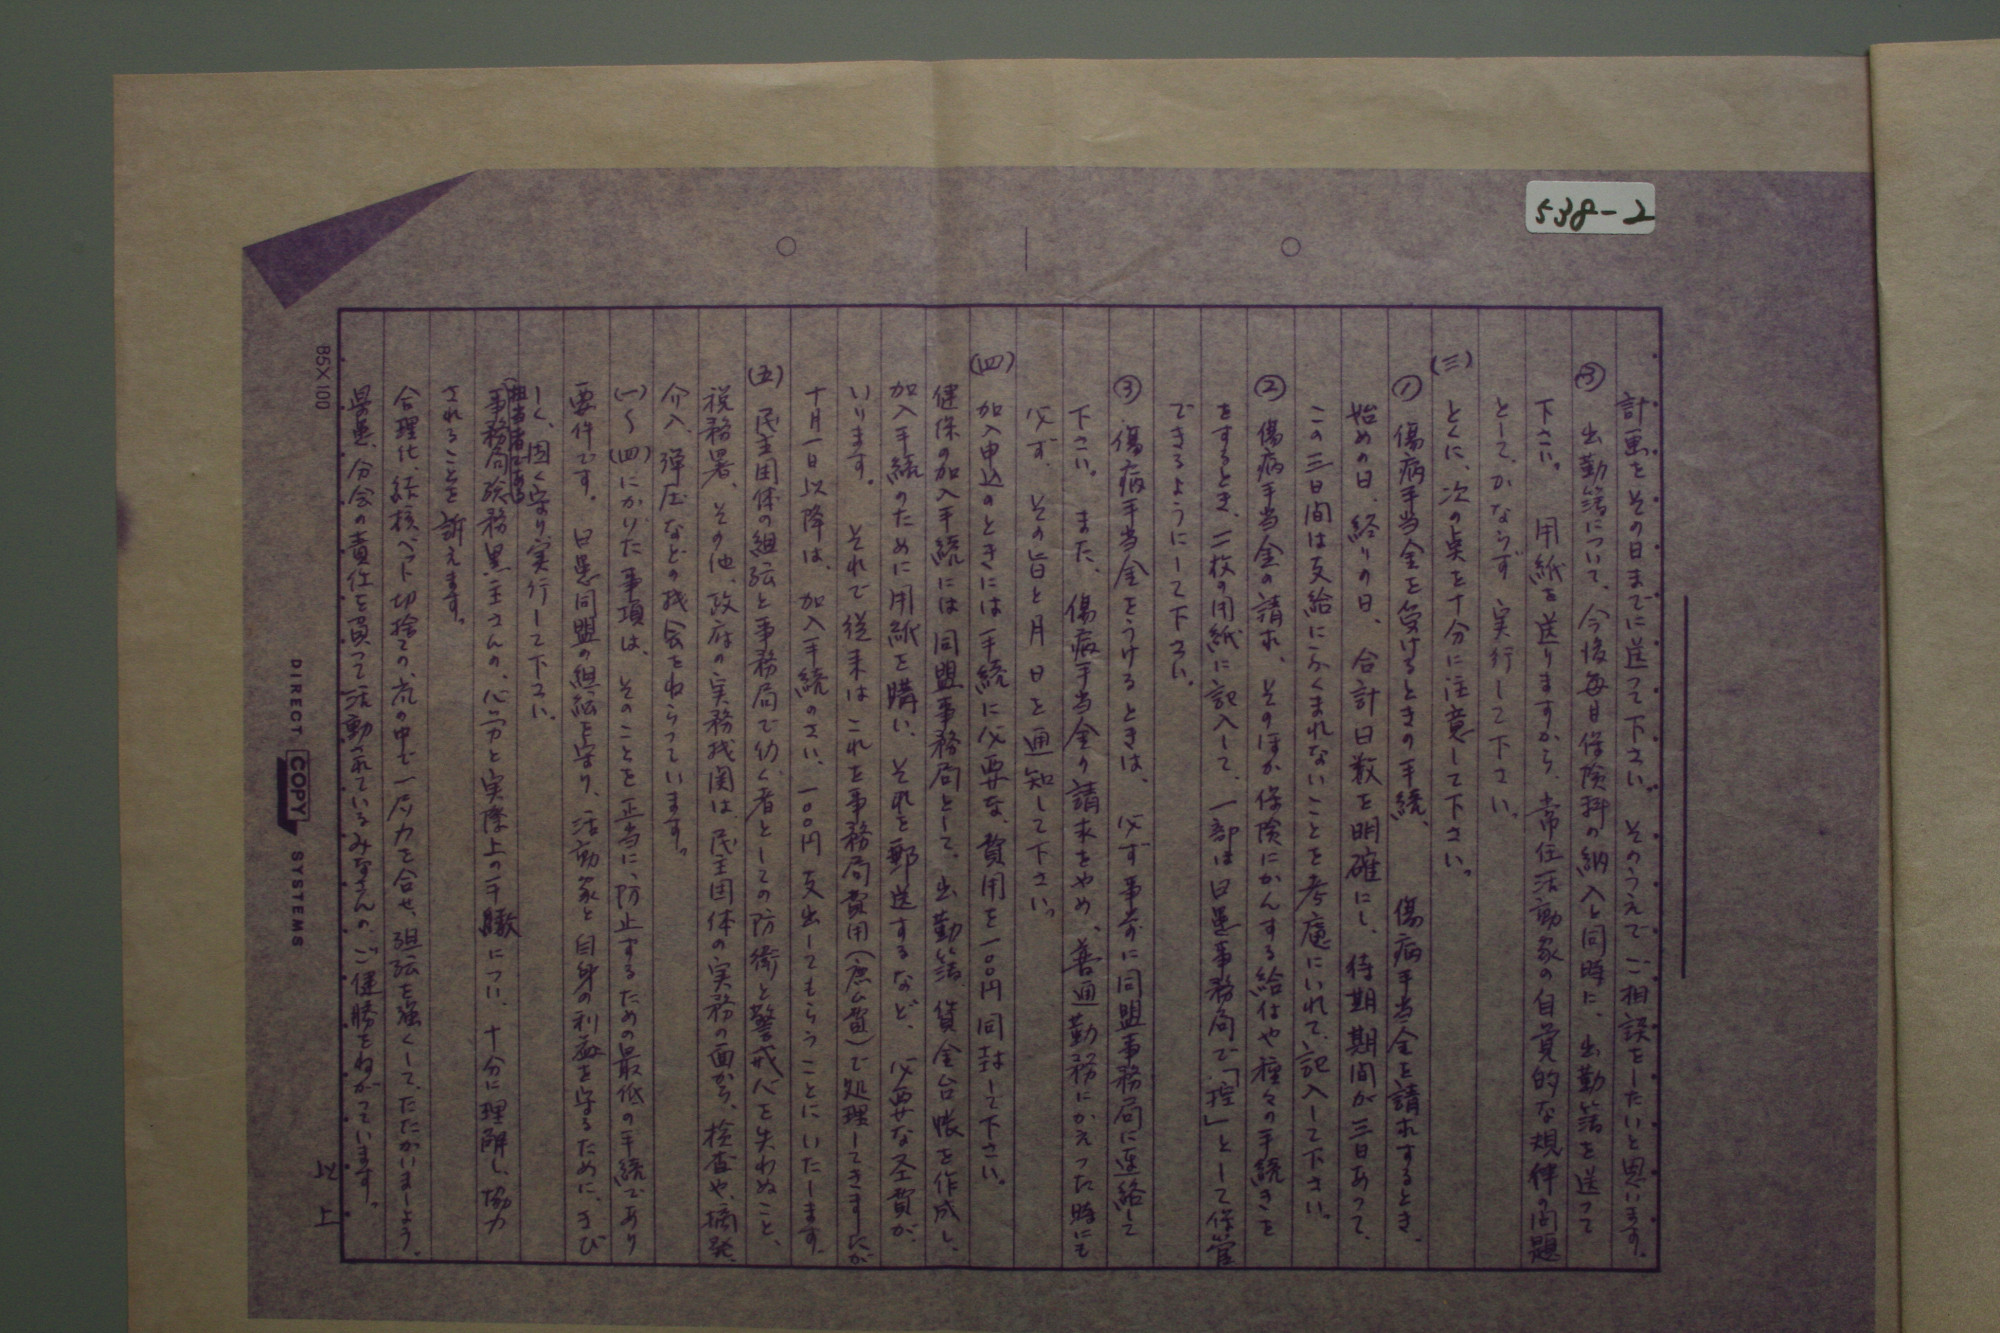 538-2
計画をその日までに送って下さい。そのうえでご相談をしたいと思います。
③ 出勤簿について、今後毎日保険料の納入と同時に、出勤簿を送って
下さい。用紙を送りますから、常任活動家の自覚的な規律の問題
として、かならず実行して下さい。
(三) とくに、次の点を十分に注意して下さい。
① 傷病手当金を受けるときの手続、傷病手当金を請求するとき、
始めの日、終りの日、合計日数を明確にし、待期期間が三日あって、
この三日間は支給にふくまれないことを考慮にいれて、記入して下さい。
② 傷病手当金の請求、そのほか保険にかんする給付や種々の手続きを
をするとき、二枚の用紙に記入して、一部は日患事務局で「控」として保管
できるようにして下さい。
③ 傷病手当金をうけるときは、必ず事前に同盟事務局に連絡して
下さい。また、傷病手当金の請求をやめ、普通勤務にかえった時にも
必ず、その旨と月日を通知して下さい。
(四) 加入申込のときには手続に必要な、費用を一〇〇円同封して下さい。
健保の加入手続には同盟事務局として、出勤簿、賃金台帳を作成し、
加入手続のために用紙を購い、それを郵送するなど、必要な全費が
いります。それで従来はこれを事務局費用(庶ム費)で処理してきましたが
十月一日以降は、加入手続のさい、一〇〇円支出してもらうことにいたします。
(五) 民主団体の組织と事務局で仂く者としての防衛と警戒心を失わぬこと、
税務署、その他、政府の実務機関は、民主団体の実務の面から、検査や、摘発、
介入、弾圧などの機会をねらっています。
(一)〜(四)にかゝりた事項は、そのことを正当に、防止するための最低の手続であり
要件です。日患同盟の組织を守り、活動家と自身の利益を守るために、きび
しく、固く守り実行して下さい。
(担当者である)
事務局険務黒主さんの、心労と実際上の手輟につい、十分に理解し、協力
されることを訴えます。
合理化、結核ベット切捨ての、嵐の中で一層力を合せ、组织を強くして、たたかいましょう。
県患、分会の責任を負って活動されているみなさんの、ご健勝をねがっています。
以上
B5X1100
DIRECT COPY SYSTEMS